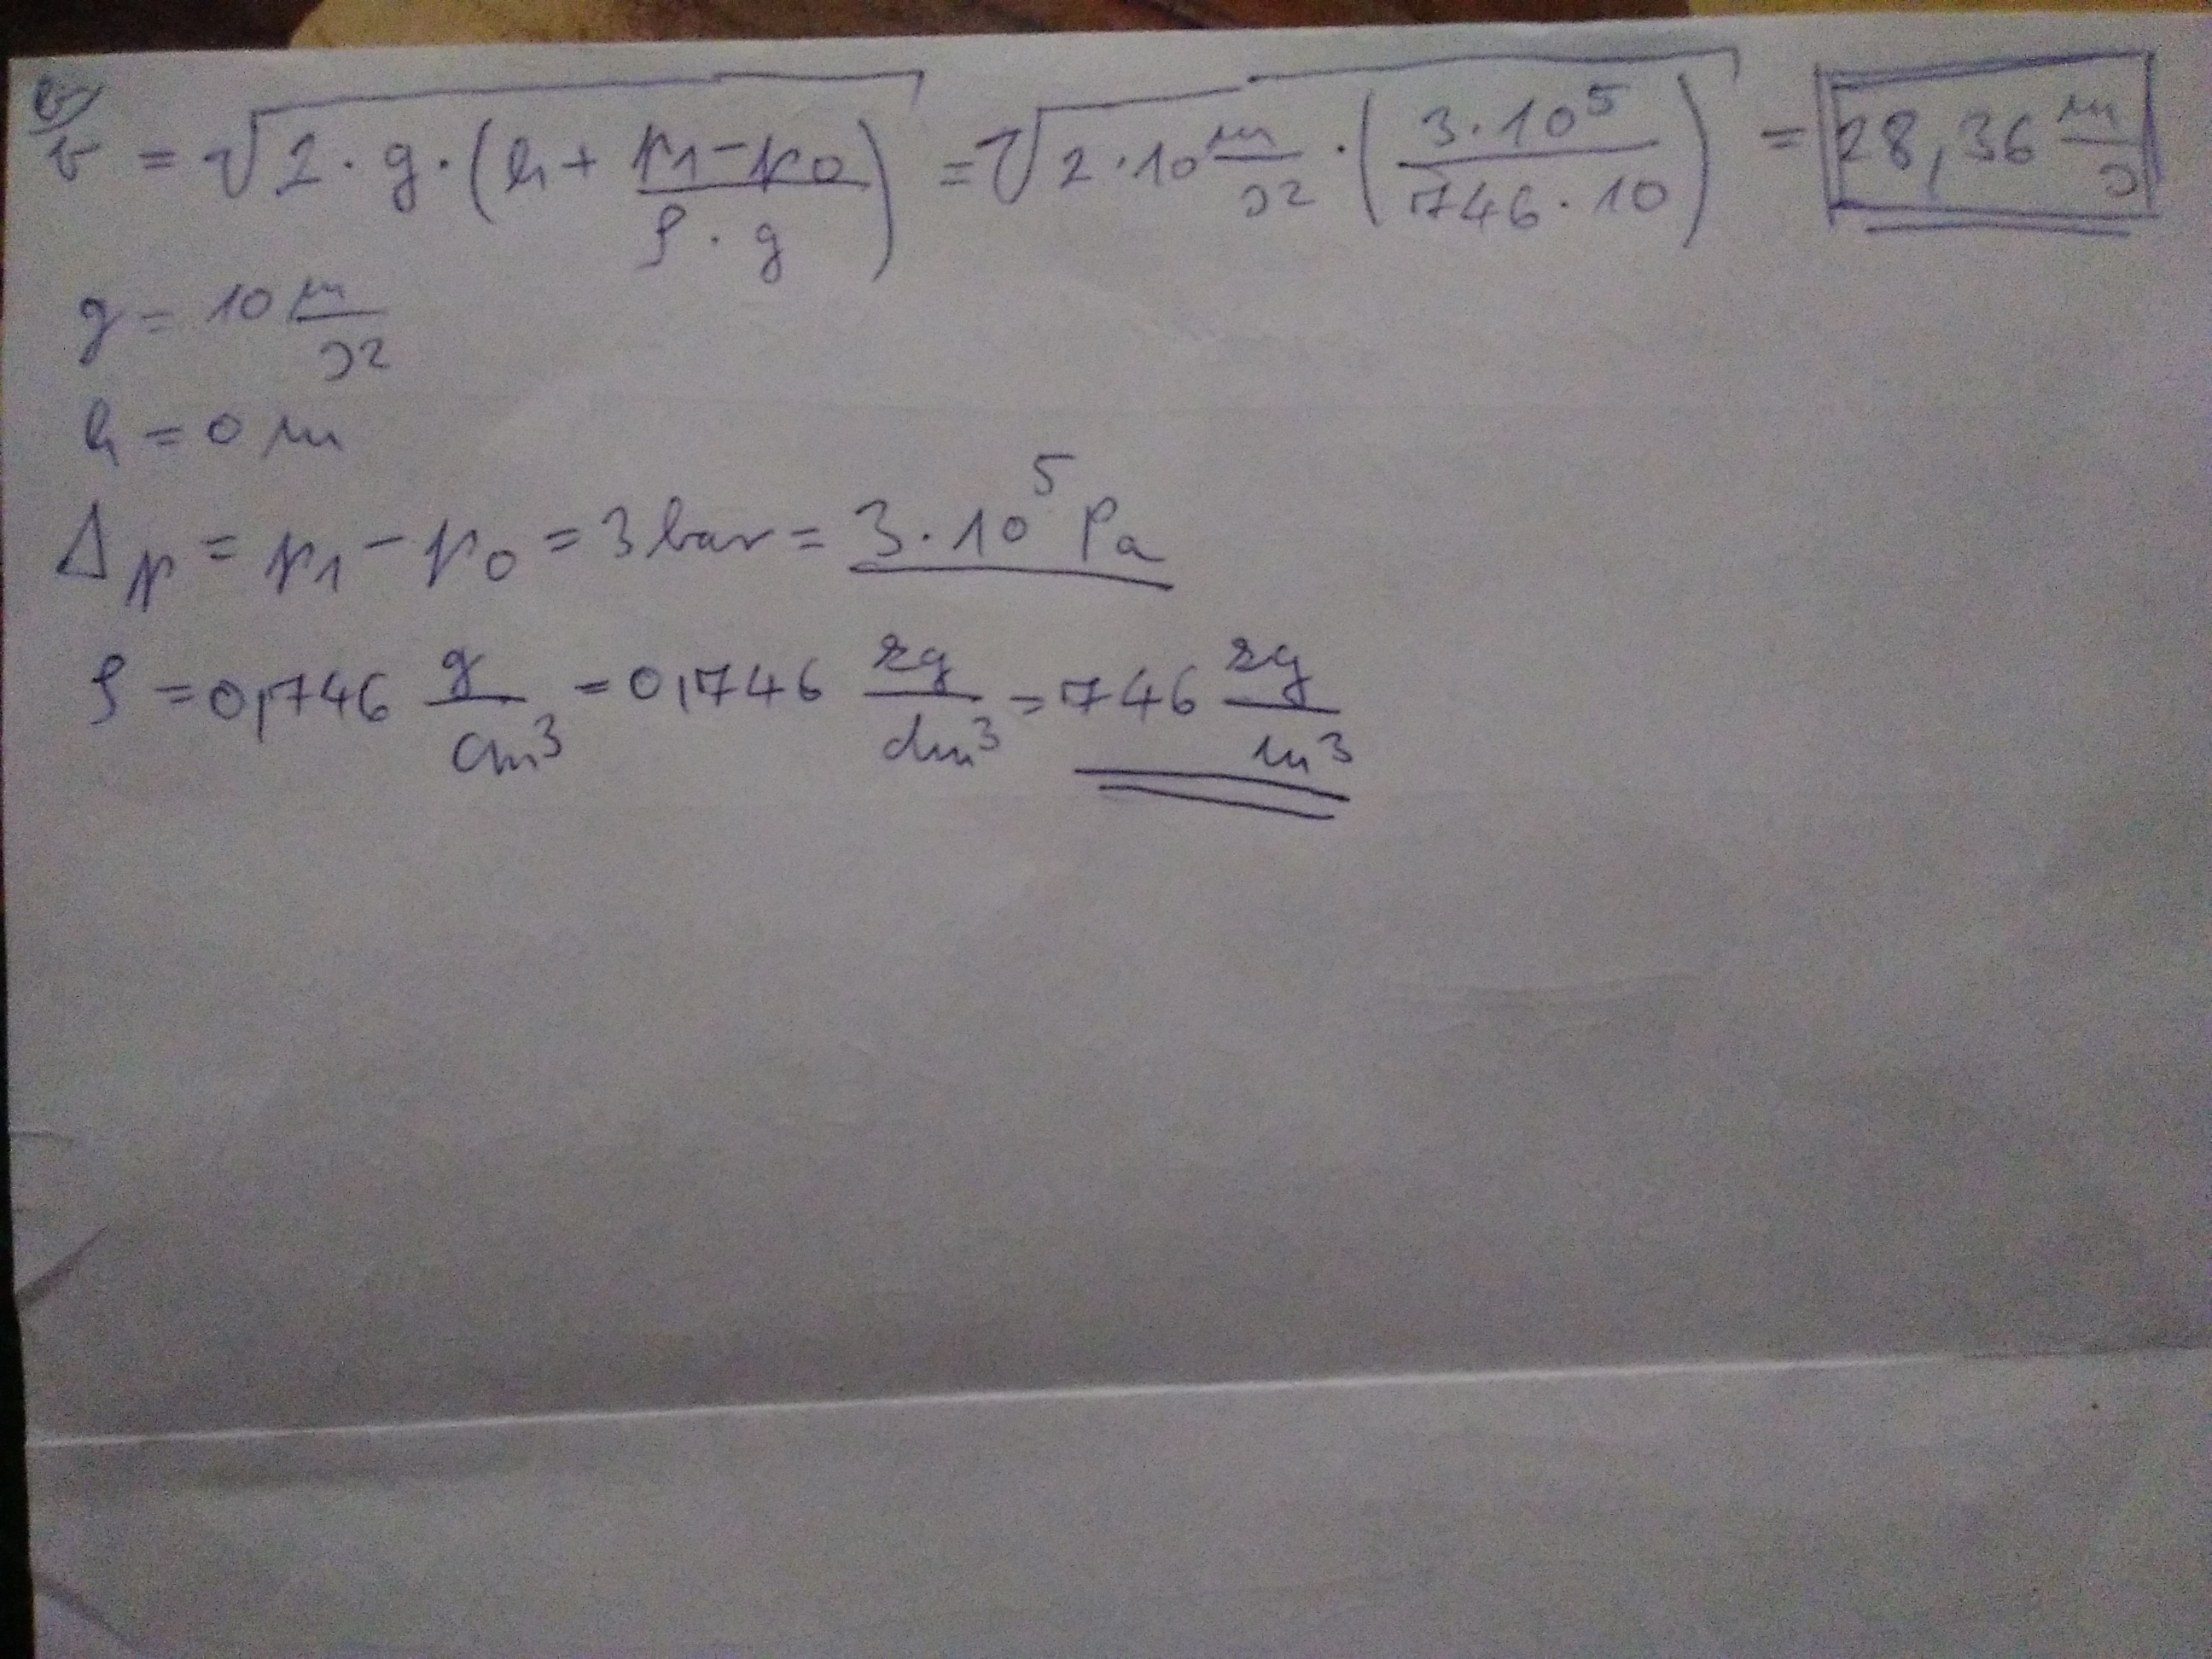 v = √(2 · g · (h + (p₁ − p₀)/(ρ · g))) = √(2 · 10 m/s² · (3 · 10⁵/(746 · 10))) = 28,36 m/s
g = 10 m/s²
h = 0 m
Δp = p₁ − p₀ = 3 bar = 3 · 10⁵ Pa
ρ = 0,746 g/cm³ = 0,746 kg/dm³ = 746 kg/m³